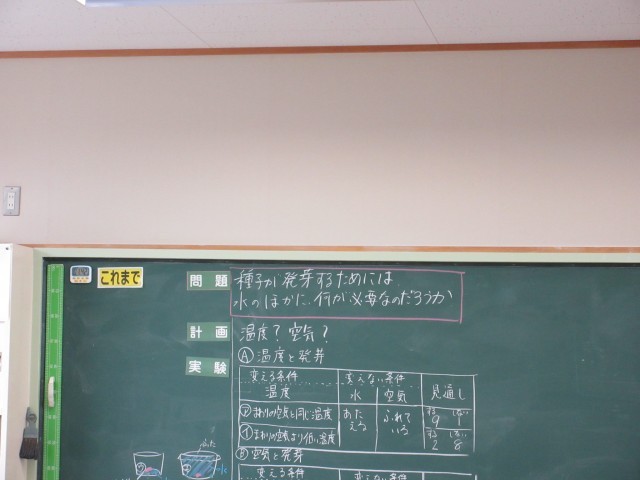 これまで
問題
種子が発芽するためには
水のほかに、何が必要なのだろうか
計画
温度？空気？
実験
Ⓐ温度と発芽
変える条件
変えない条件
見通し
温度
水
空気
㋐まわりの空気と同じ温度
あたえる
ふれている
する
しない
9
1
㋑まわりの空気より低い温度
する
しない
2
8
Ⓑ空気と発芽
変える条件
変えない条件
ふた
水